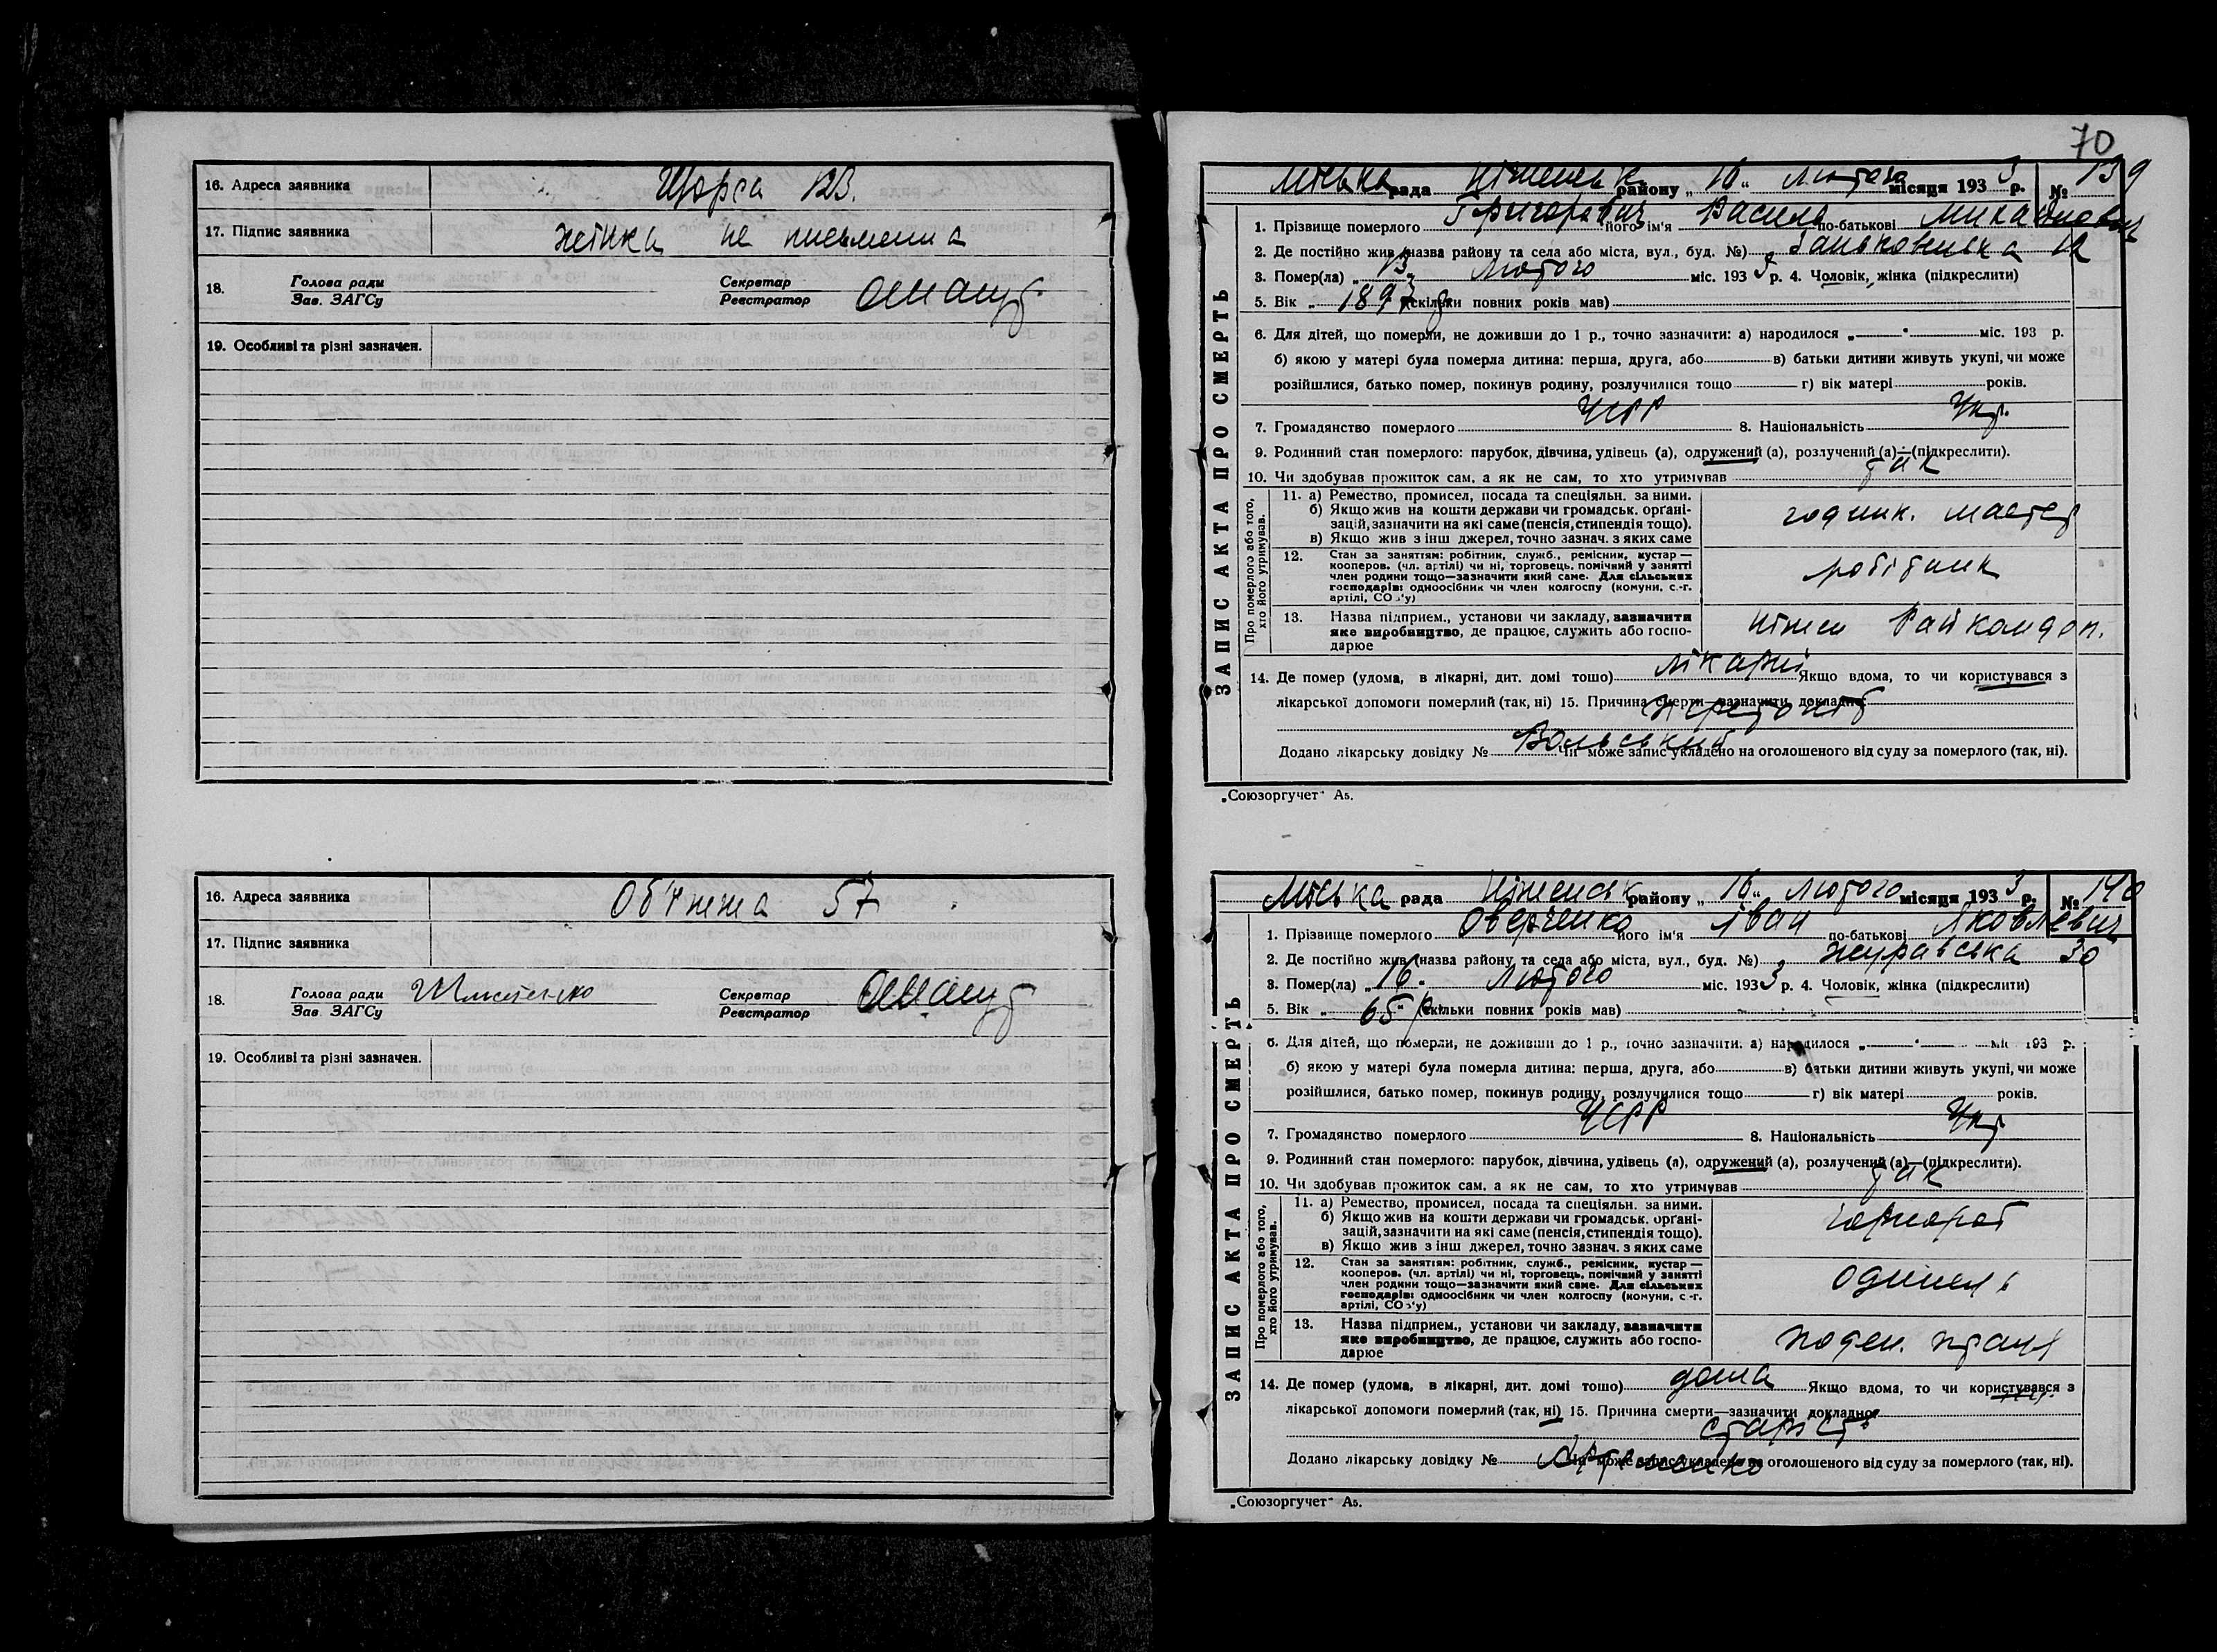 16. Адреса заявника Щорса 123.
17. Підпис заявника жінка не письменна
18. Голова ради Секретар
Зав. ЗАГСу Реєстратор
19. Особливі та різні зазначен.
16. Адреса заявника Об'їжжа 57
17. Підпис заявника
18. Голова ради Секретар
Зав. ЗАГСу Реєстратор
19. Особливі та різні зазначен.
70
ЗАПИС АКТА ПРО СМЕРТЬ
Міська рада Ніженськ району „16“ Лютого місяця 1933 р. № 139
1. Прізвище померлого Григорович його ім'я Василь по-батькові Михайлович
2. Де постійно жив (назва району та села або міста, вул., буд. №) 12
3. Помер(ла) „13„ Лютого міс. 193 р. 4. Чоловік, жінка (підкреслити)
5. Вік „ 1897 (скільки повних років мав)
6. Для дітей, що померли, не доживши до 1 р., точно зазначити: а) народилося „ “ міс. 193 р.
б) якою у матері була померла дитина: перша, друга, або в) батьки дитини живуть укупі, чи може
розійшлися, батько помер, покинув родину, розлучилися тощо г) вік матері років.
7. Громадянство померлого УСРР 8. Національність Укр.
9. Родинний стан померлого: парубок, дівчина, удівець (а), одружений (а), розлучений (а)—(підкреслити).
10. Чи здобував прожиток сам, а як не сам, то хто утримував так
Про померлого або того, хто його утримував.
11. а) Ремество, промисел, посада та спеціяльн. за ними.
б) Якщо жив на кошти держави чи громадськ. орґані-
зацій, зазначити на які саме (пенсія, стипендія тощо).
в) Якщо жив з інш джерел, точно зазнач. з яких саме
годинк. мастер
12. Стан за заняттям: робітник, служб., ремісник, кустар —
кооперов. (чл. артілі) чи ні, торговець, помічний у занятті
член родини тощо—зазначити який саме. Для сільських
господарів: одноосібник чи член колгоспу (комуни, с.-г.
артілі, СОЗ'у)
робітник
13. Назва підприєм., установи чи закладу, зазначити
яке виробництво, де працює, служить або госпо-
дарює
Ніжен Райкомдоп.
14. Де помер (удома, в лікарні, дит. домі тощо) лікарні Якщо вдома, то чи користувався з
лікарської допомоги померлий (так, ні) 15. Причина смерти—зазначити докладно
Додано лікарську довідку № Вольський Чи може запис укладено на оголошеного від суду за померлого (так, ні).
„Союзоргучет“ А5.
ЗАПИС АКТА ПРО СМЕРТЬ
Міська рада Ніженськ району „16“ Лютого місяця 1933 р. № 140
1. Прізвище померлого Оверченко його ім'я Іван по-батькові Яковлевич
2. Де постійно жив (назва району та села або міста, вул., буд. №) Журавська 30
3. Помер(ла) „16„ Лютого міс. 1933 р. 4. Чоловік, жінка (підкреслити)
5. Вік „ 65 р. (скільки повних років мав)
6. Для дітей, що померли, не доживши до 1 р., точно зазначити: а) народилося „ “ міс. 193 р.
б) якою у матері була померла дитина: перша, друга, або в) батьки дитини живуть укупі, чи може
розійшлися, батько помер, покинув родину, розлучилися тощо г) вік матері років.
7. Громадянство померлого УСРР 8. Національність Укр
9. Родинний стан померлого: парубок, дівчина, удівець (а), одружений (а), розлучений (а)—(підкреслити).
10. Чи здобував прожиток сам, а як не сам, то хто утримував так
Про померлого або того, хто його утримував.
11. а) Ремество, промисел, посада та спеціяльн. за ними.
б) Якщо жив на кошти держави чи громадськ. орґані-
зацій, зазначити на які саме (пенсія, стипендія тощо).
в) Якщо жив з інш джерел, точно зазнач. з яких саме
чорнороб
12. Стан за заняттям: робітник, служб., ремісник, кустар —
кооперов. (чл. артілі) чи ні, торговець, помічний у занятті
член родини тощо—зазначити який саме. Для сільських
господарів: одноосібник чи член колгоспу (комуни, с.-г.
артілі, СОЗ'у)
13. Назва підприєм., установи чи закладу, зазначити
яке виробництво, де працює, служить або госпо-
дарює
поден. праця
14. Де помер (удома, в лікарні, дит. домі тощо) дома Якщо вдома, то чи користувався з
лікарської допомоги померлий (так, ні) 15. Причина смерти—зазначити докладно
старість
Додано лікарську довідку № Чи може запис укладено на оголошеного від суду за померлого (так, ні).
„Союзоргучет“ А5.